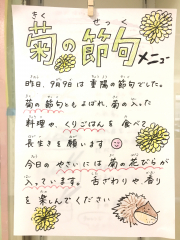 きく せっく
菊の節句メニュー
昨日、9月9日は重陽の節句でした。
菊の節句ともよばれ、菊の入った
料理や、くりごはんを食べて
長生きを願います
今日のやさいには菊の花びらが
入っています。舌ざわりや、香り
を楽しんでください